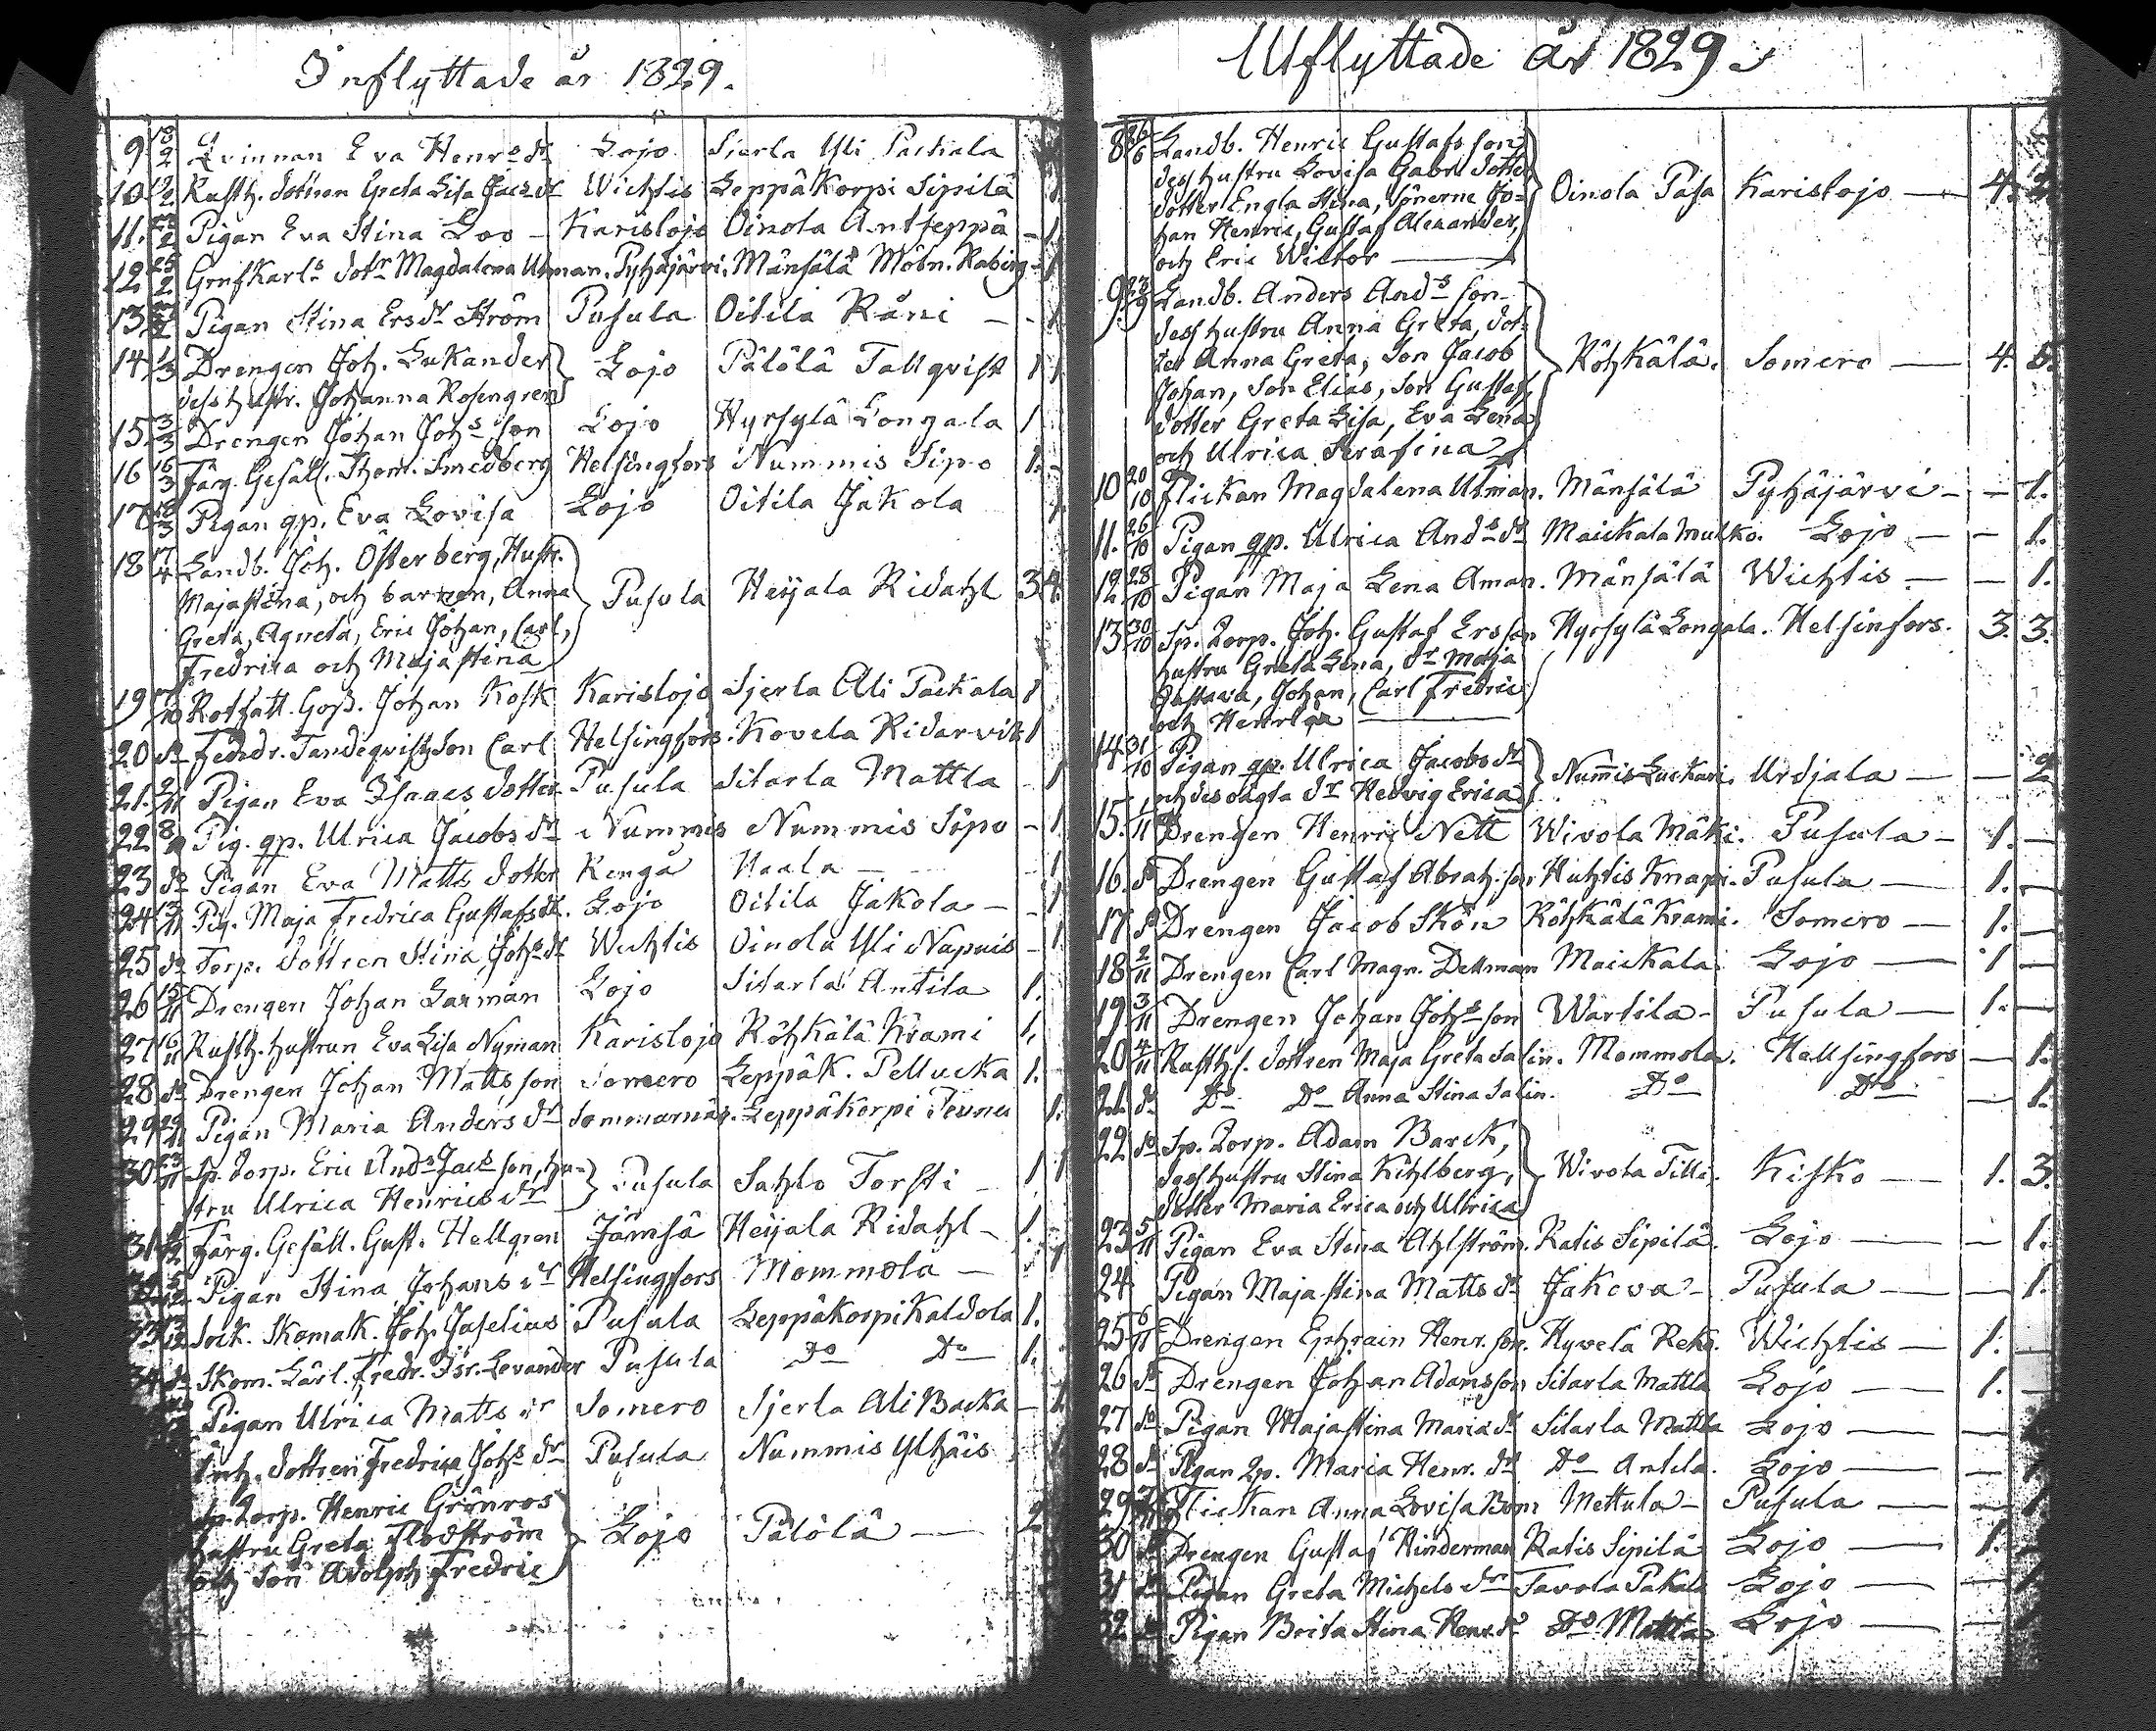 Inflyttade år 1829.
9 18/2 Qvinnan Eva Henrsdr Lojo Sierla Yli Packala
10 Rusth. dottren Greta Lisa Jacsdr Wichtis Leppäkorpi Sipilä 1
11. Pigan Eva Stina Loo – Karislojo Oinola Antseppä – 1
12 25/2 Grufkarls dotr Magdalena Utman. Pyhäjärvi. Mänsälä Möln. 1
13 Pigan Stina Ersdr Ström Pusula Oitila Räni – – 1
14. 1/3 Drengen Joh. Lukander Lojo Pälölä Tallqvist 1 1
dess hustr. Johanna Rosengren
15 3/3 Drengen Johan Johs son Lojo Hyrsylä Longala 1
16 15/3 Färg. Gesäll. Thom. Smedberg Helsingfors Nummis Sipo 1. –
17 18/3 Pigan qp. Eva Lovisa Lojo Oitila Jakola 1
18 17/4 Landb. Joh. Österberg, Hustr.
Majastina, och barnen, Anna Pusula Heijala Ridahl 3 4.
Greta, Agneta, Eric Johan, Carl,
Fredrica och Majastina
19 17/10 Rotfatt. Goss. Johan Kosk Karislojo Sjerla Ali Packala 1
20 do Fendr. Tandeqvist Son Carl Helsingfors. Kovela Ridarvik 1
21. 2/11 Pigan Eva Isaacs dotter Pusula Sitarla Mattla – 1
22 8/11 Pig. qp. Ulrica Jacobs dr Nummis Nummis Sipo – 1
23 do Pigan Eva Matts dotter Kengä Haala – 1
24 13/11 Pig. Maja Fredrica Gustafsdr. Lojo Oitila Jakola – – 1
25 do Torp. dottren Stina Johsdr Wichtis Oinola Yli Napuis – 1.
26 15/11 Drengen Johan Garman Lojo Sitarla Antila 1.
27 16/11 Rusth. hustrun Eva Lisa Nyman Karislojo Röhkälä Krami 1.
28 do Drengen Johan Mattsson Somero Leppäk. Pellucka 1.
29 29/11 Pigan Maria Anders dr Sommarnäs. Leppäkorpi Peunu 1.
30 23/11 Sp. Torp. Eric Ands Jacs son, hu- Pusula Sahlo Torsti – 1 1
stru Ulrica Henricsdr
31 Färg. Gesäll. Gust. Hellgren Jämsä Heijala Ridahl – 1.
Pigan Stina Johans dr Helsingfors Mommola – 1
33 Sock. Skomak. Joh. Juselius Pusula Leppäkorpi Kaldola 1.
34 do Skom. Lärl. Fredr. Isr. Levander Pusula Do Do 1.
Pigan Ulrica Matts dr Somero Sjerla Ali Backa – 1
Inh. dottren Fredrica Johs dr Pusula Nummis Ylhäis
Sp. Torp. Henric Grönros
hustru Greta Flodström Lojo Pälölä – 2
och Son Adolph Fredric
Utflyttade år 1829.
8 26/6 Landb. Henric Gustafsson
dess hustru Lovisa Gabr. dotter
dotter Engla Stina, Sönerne Jo- Oinola Pasa Karislojo – 4.
han Henric, Gustaf Alexander,
och Eric Wictor
9 23/9 Landb. Anders Ands son
dess hustru Anna Greta, dot-
ter Anna Greta, Son Jacob Röhkälä. Somero – 4. 5.
Johan, Son Elias, Son Gustaf,
dotter Greta Lisa, Eva Lena
och Ulrica Serafina
10 20/10 Flickan Magdalena Utman. Mänsälä Pyhäjärvi – – 1.
11. 26/10 Pigan qp. Ulrica Ands dr Maickala Mulko. Lojo – – 1.
12. 28/10 Pigan Maja Lena Aman. Mänsälä Wichtis – – 1.
13 30/10 Sp. Torp. Joh. Gustaf Ersson Hyrsylä Longala. Helsinfors. 3. 3.
hustru Greta Lena, dr Maja
Gustava, Johan, Carl Fredric
och Henrica
14 31/10 Pigan qp. Ulrica Jacobs dr Nummis Luckari. Urdjala – – 2
och des oägta dr Hedvig Erica
15. 1/11 Drengen Henric Nett Wivola Mäki. Pusula – 1. –
16. do Drengen Gustaf Abrah. son Huhtis Knapi. Pusula – 1. –
17 do Drengen Jacob Skön Röhkälä Krami. Somero – 1. –
18 2/11 Drengen Carl Magn. Dellman Maickala. Lojo – 1 –
19 3/11 Drengen Johan Johs son Wartila – Pusula – 1. –
20 4/11 Rusth. s. dottren Maja Greta Salin. Mommola. Hellsingfors – 1.
21. do Do Do Anna Stina Salin. Do Do – 1.
22 do Sp. Torp. Adam Barck,
dess hustru Stina Kihlberg, Wivola Tilli. Kisko – 1. 3.
dotter Maria Erica och Ulrica
23 5/11 Pigan Eva Stina Ahlström. Ratis Sipilä. Lojo – – 1.
24 Pigan Maja Stina Matts dr Jakova – Pusula – – 1.
25 6/11 Drengen Ephraim Henr. son. Hyvelä Rekö. Wichtis – 1. –
26 do Drengen Johan Adamsson Sitarla Mattla Lojo – 1. –
27 do Pigan Majastina Mariædr Sitarla Mattla Lojo – –
28 do Pigan qp. Maria Henr. dr Do Antila. Lojo – –
29 Flickan Anna Lovisa Bom Mettula – Pusula – –
30 Drengen Gustaf Hinderman Ratis Sipilä Lojo – 1.
31 Pigan Greta Michels dr Tavola Pakala Lojo – –
32 Pigan Brita Stina Henr. dr Do Mattla Lojo – –